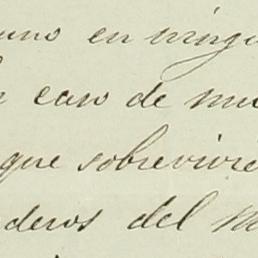 uno en ningu
caso de mu
que sobrevivie
deros del m